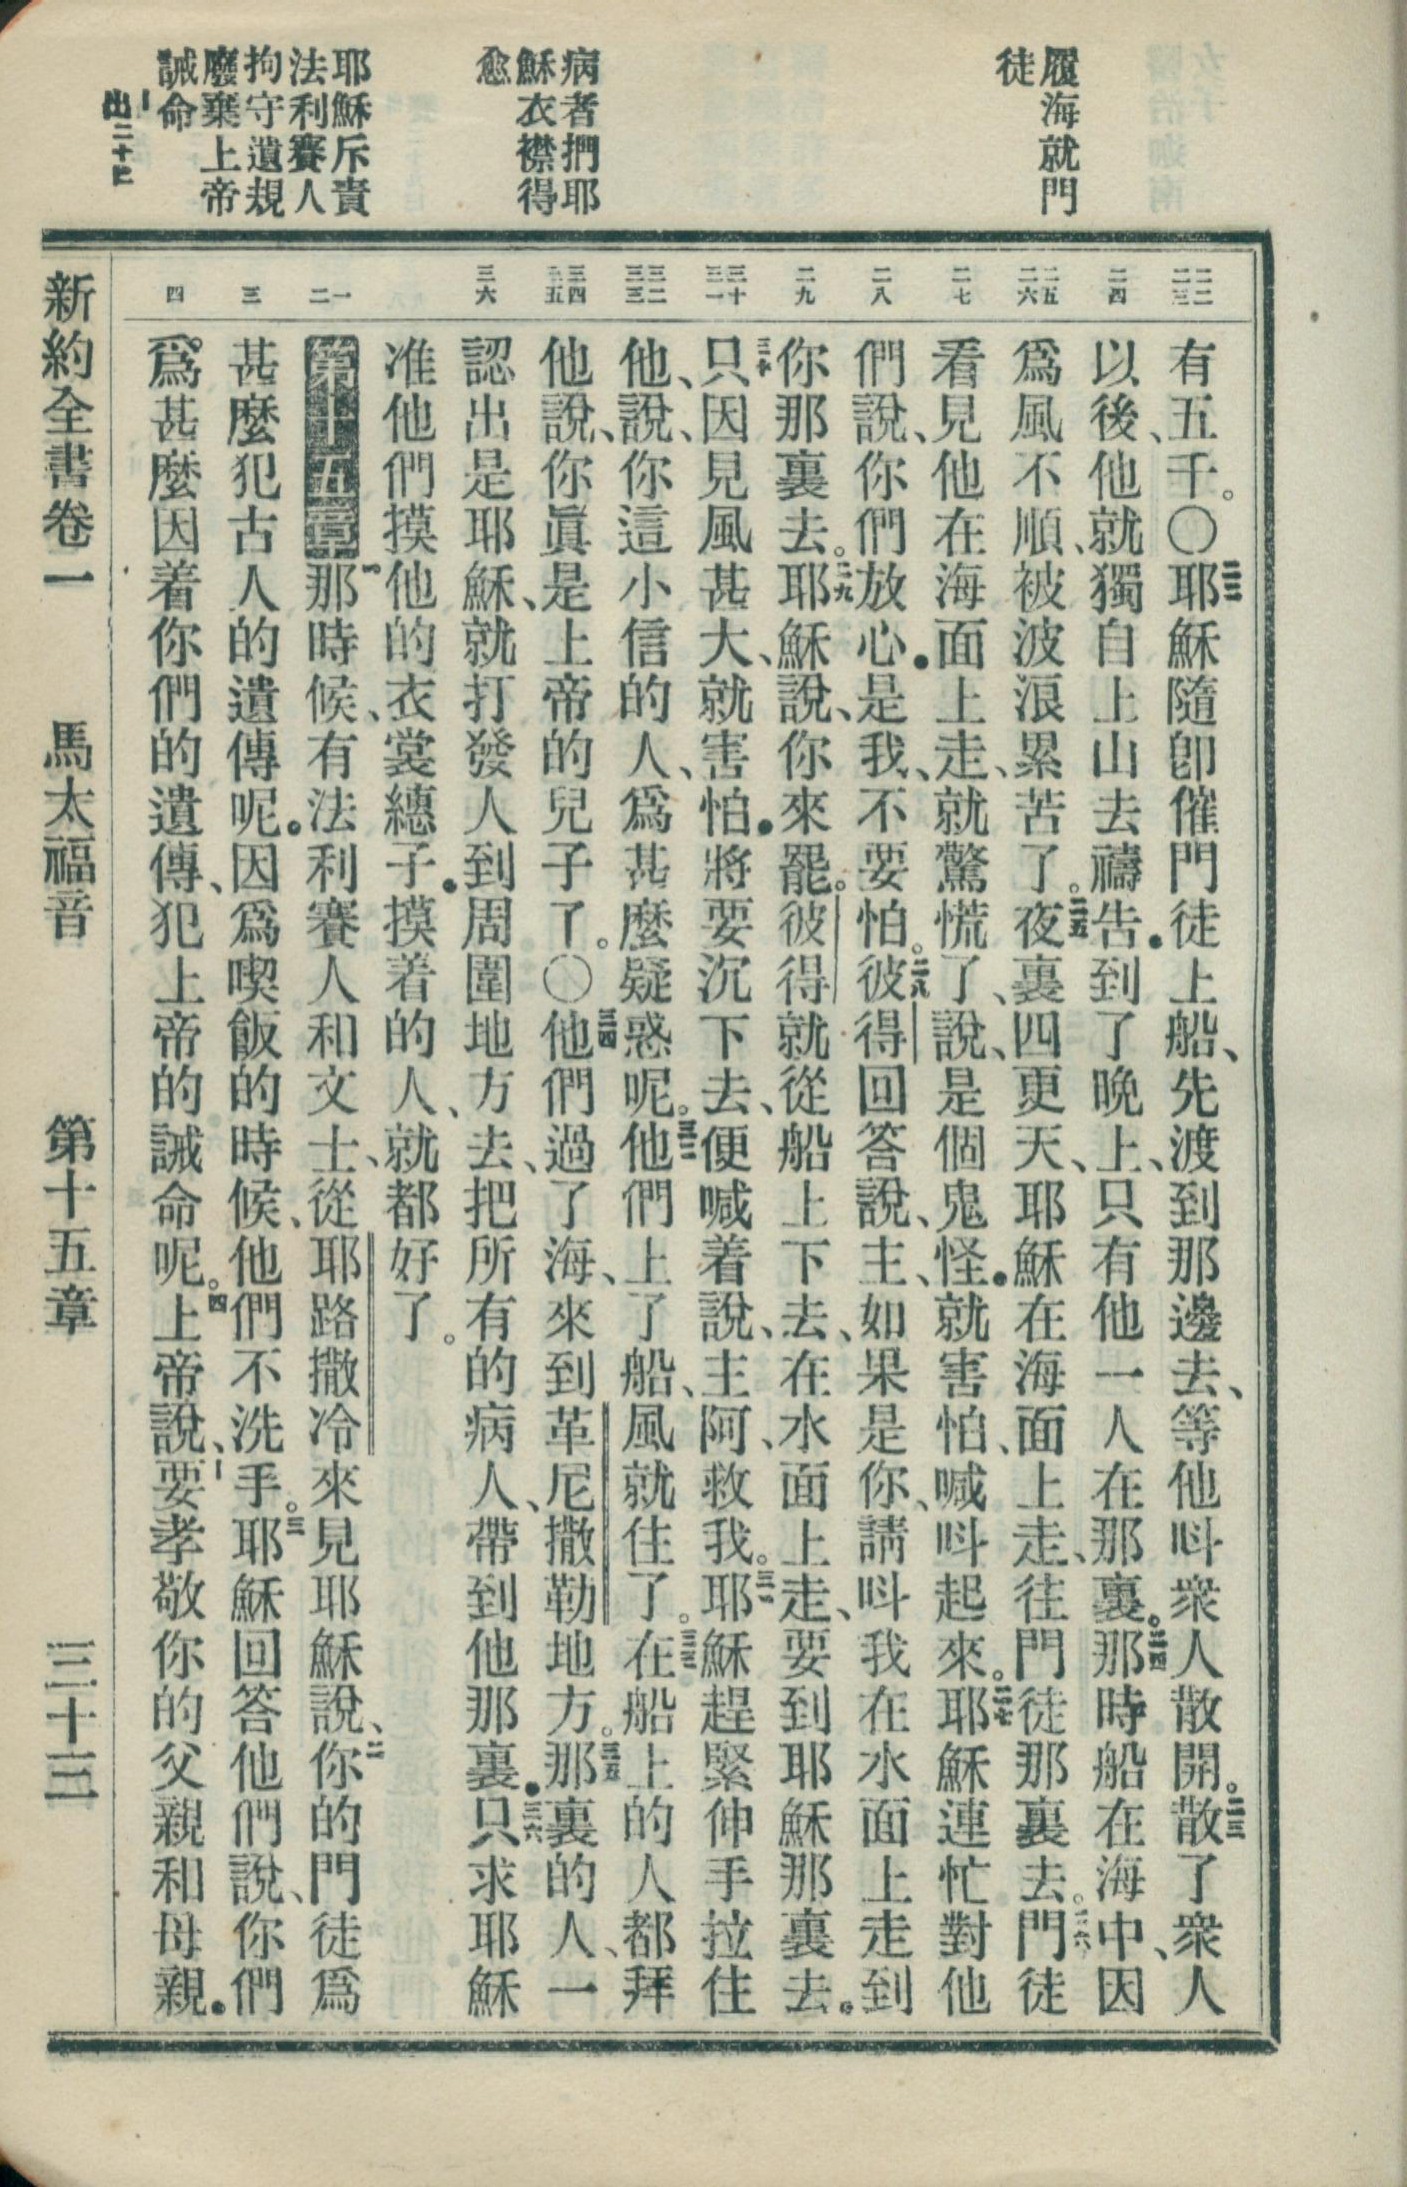 履海就門
徒
病者捫耶
穌衣襟得
愈
耶穌斥責
法利賽人
拘守遺規
廢棄上帝
誡命
出二十
二二 二三
二四
二五 二六
二七
二八
二九
三十 三一
三二 三三
三四 三五
三六
一 二
三
四
有五千。〇二二耶穌隨卽催門徒上船、先渡到那邊去、等他呌衆人散開。二三散了衆人
以後、他就獨自上山去禱告．到了晚上、只有他一人在那裏。二四那時船在海中、因
爲風不順、被波浪累苦了。二五夜裏四更天、耶穌在海面上走、往門徒那裏去。二六門徒
看見他在海面上走、就驚慌了、說、是個鬼怪．就害怕、喊呌起來。二七耶穌連忙對他
們說、你們放心．是我、不要怕。二八彼得回答說、主、如果是你、請呌我在水面上走到
你那裏去。二九耶穌說、你來罷。彼得就從船上下去、在水面上走、要到耶穌那裏去。
三十只因見風甚大、就害怕．將要沉下去、便喊着說、主阿、救我。三一耶穌趕緊伸手拉住
他、說、你這小信的人、爲甚麼疑惑呢。三二他們上了船、風就住了。三三在船上的人都拜
他說、你眞是上帝的兒子了。〇三四他們過了海、來到革尼撒勒地方。三五那裏的人、一
認出是耶穌、就打發人到周圍地方去、把所有的病人、帶到他那裏．三六只求耶穌
准他們摸他的衣裳繐子．摸着的人、就都好了。
第十五章一那時候、有法利賽人和文士、從耶路撒冷來見耶穌說、二你的門徒爲
甚麼犯古人的遺傳呢。因爲喫飯的時候、他們不洗手。三耶穌回答他們說、你們
爲甚麼因着你們的遺傳、犯上帝的誡命呢。四上帝說、要孝敬你的父親和母親．
新約全書卷一 馬太福音 第十五章 三十三